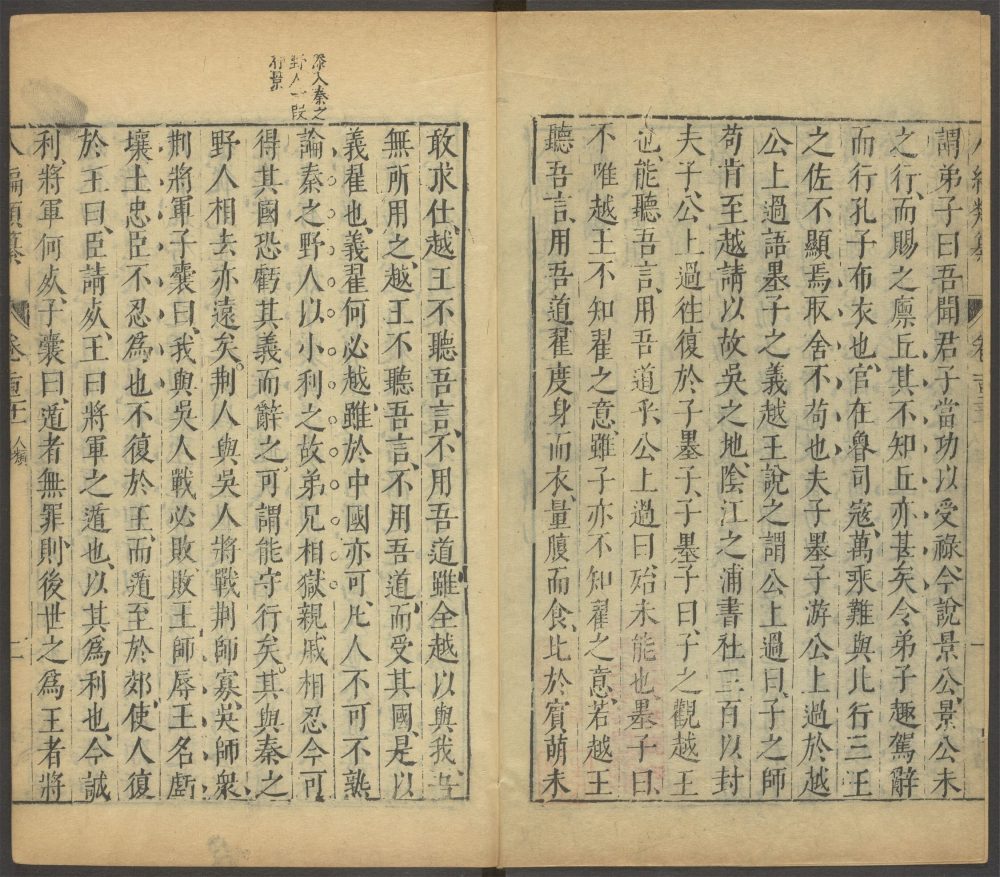 謂弟子曰吾聞君子當功以受祿今說景公景公未
之行而賜之廩丘其不知丘亦甚矣令弟子趣駕辭
而行孔子布衣也官在魯司寇萬乘難與比行三王
之佐不顯焉取舍不苟也夫子墨子游公上過於越
公上過語墨子之義越王說之謂公上過曰子之師
苟肯至越請以故吳之地陰江之浦書社三百以封
夫子公上過往復於子墨子子墨子曰子之觀越王
也能聽吾言用吾道乎公上過曰殆未能也墨子曰
不唯越王不知翟之意雖子亦不知翟之意若越王
聽吾言用吾道翟度身而衣量腹而食比於賓萌未
敢求仕越王不聽吾言不用吾道雖全越以與我吾
無所用之越王不聽吾言不用吾道而受其國是以
義翟也義翟何必越雖於中國亦可凡人不可不熟
論秦之野人以小利之故弟兄相獄親戚相忍今可
得其國恐虧其義而辭之可謂能守行矣其與秦之
野人相去亦遠矣荆人與吳人將戰荆師寡吳師衆
荆將軍子囊曰我與吳人戰必敗敗王師辱王名虧
壤土忠臣不忍爲也不復於王而遁至於郊使人復
於王曰臣請死王曰將軍之遁也以其爲利也今誠
利將軍何死子囊曰遁者無罪則後世之爲王者將
八編類纂 卷一百十 人類 二
入秦之
野人一段